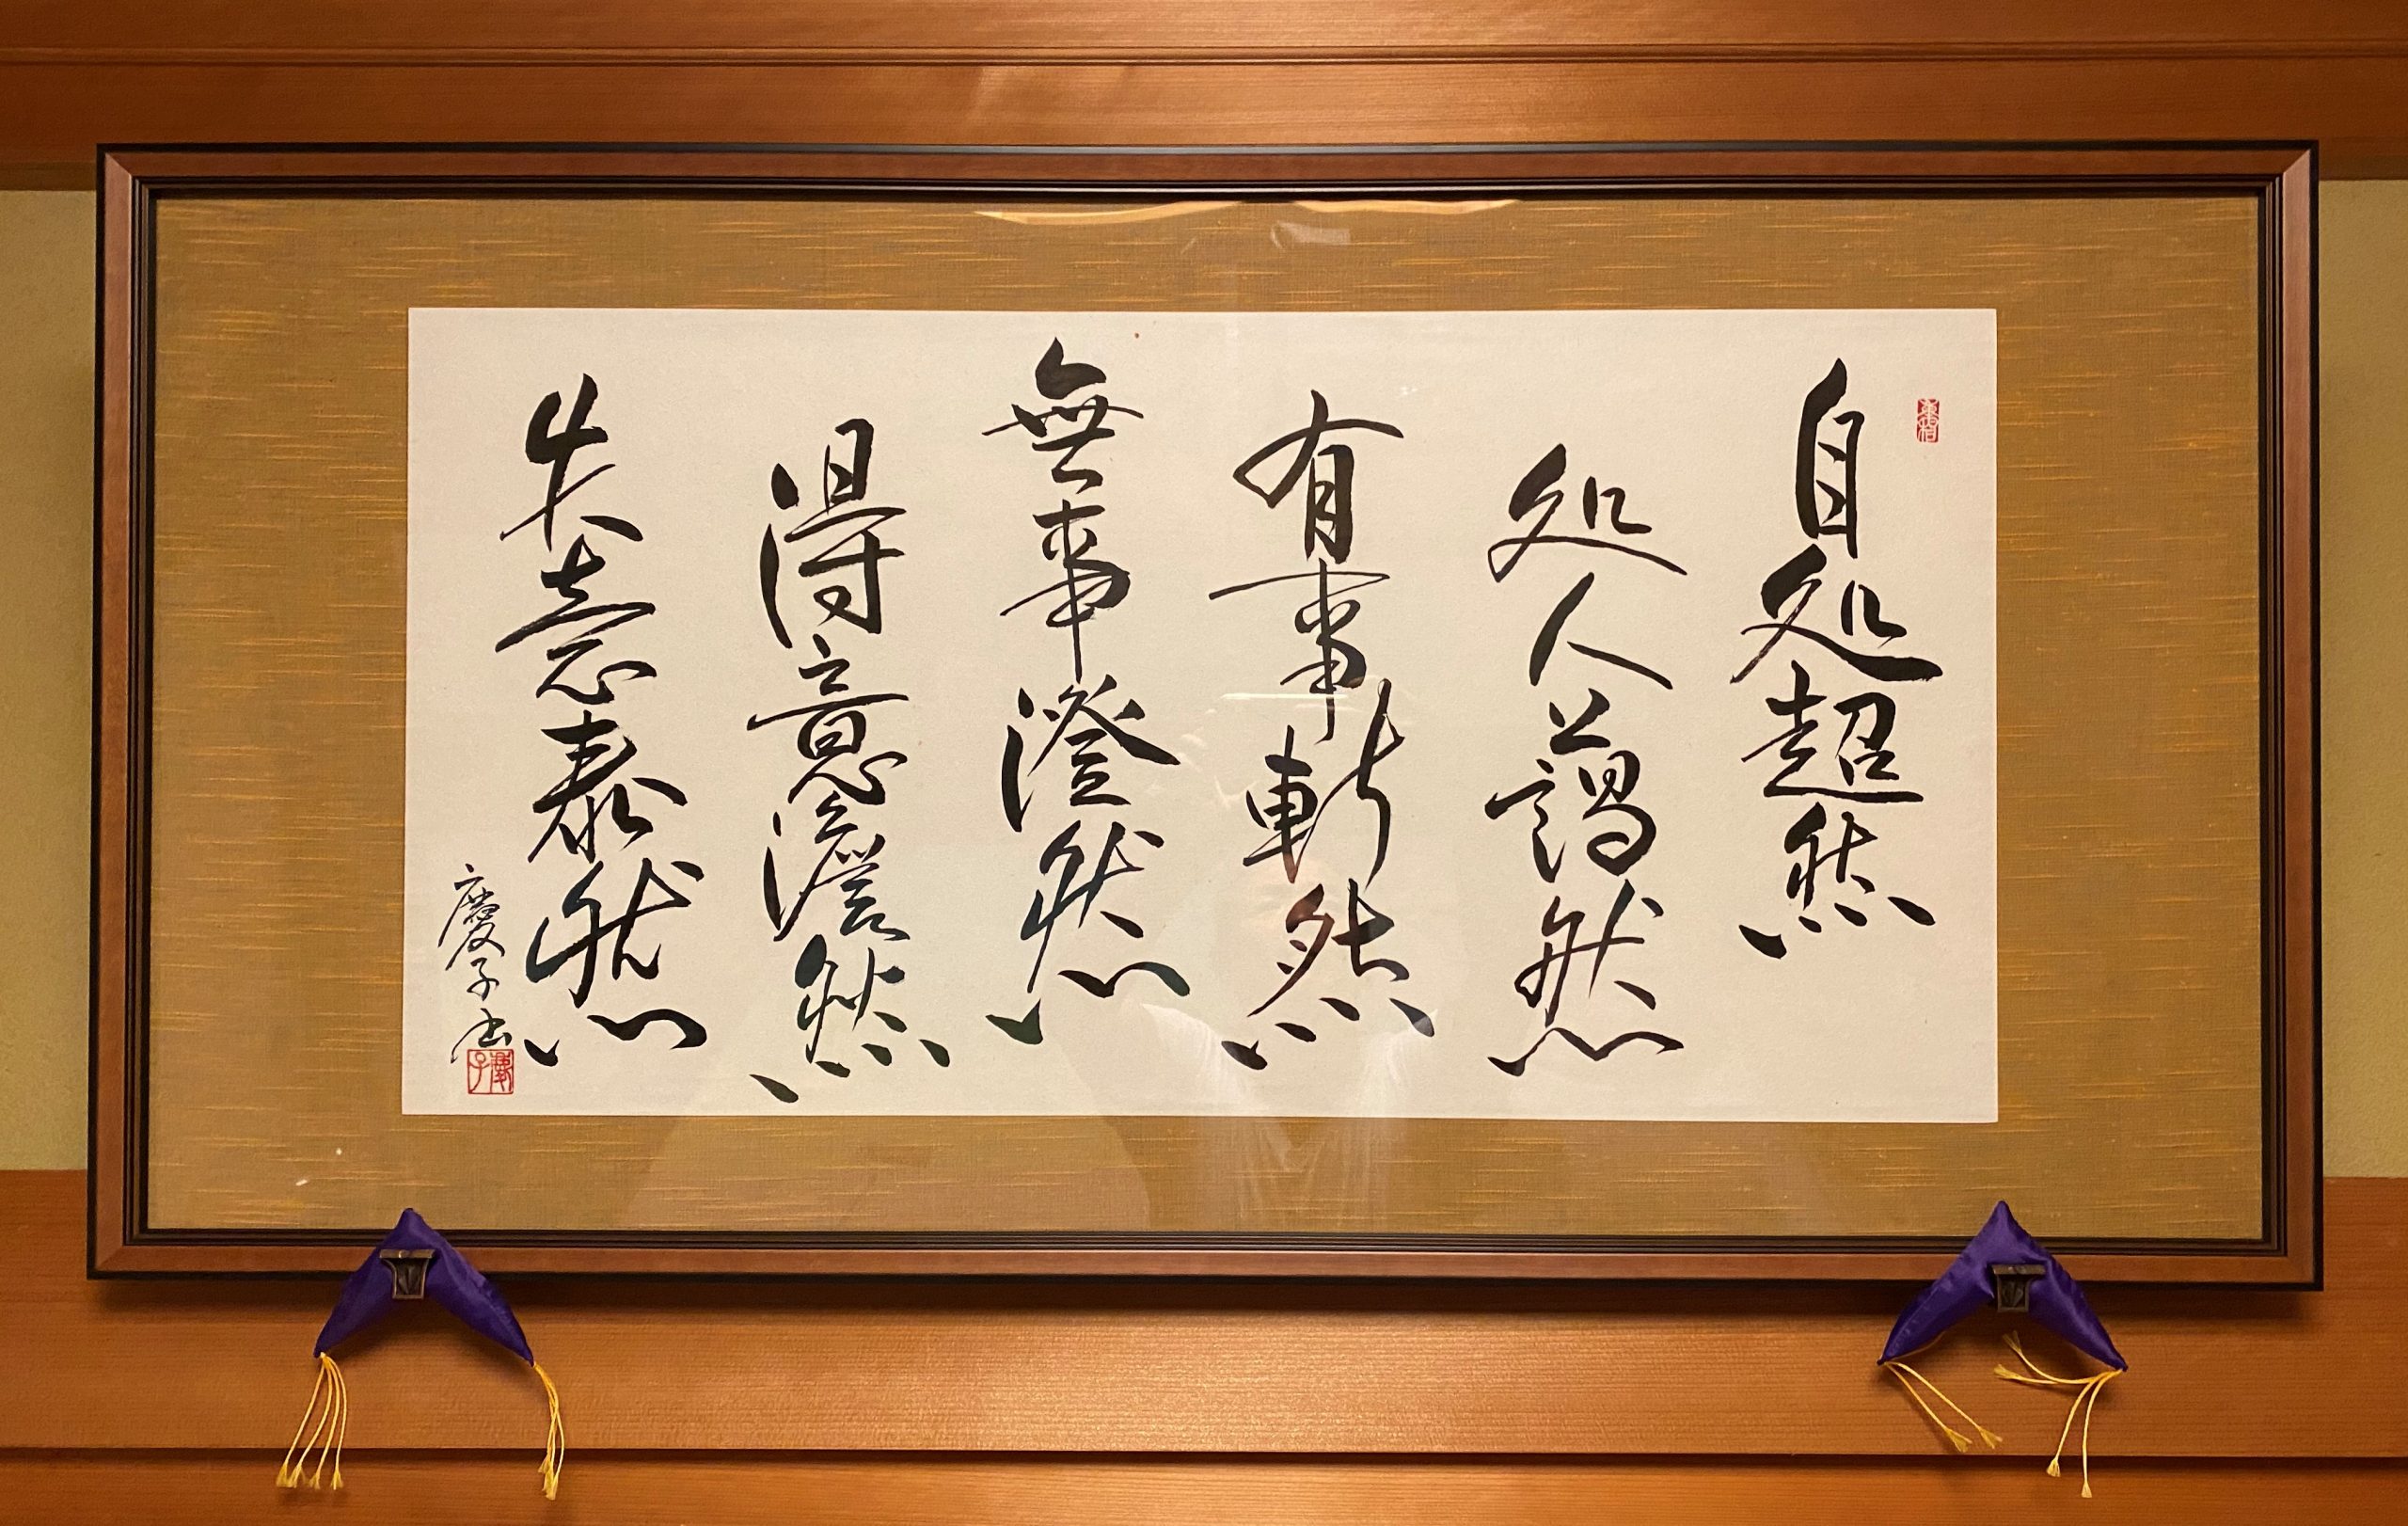 自処超然
処人藹然
有事斬然
無事澄然
得意澹然
失意泰然
慶子書
慶子